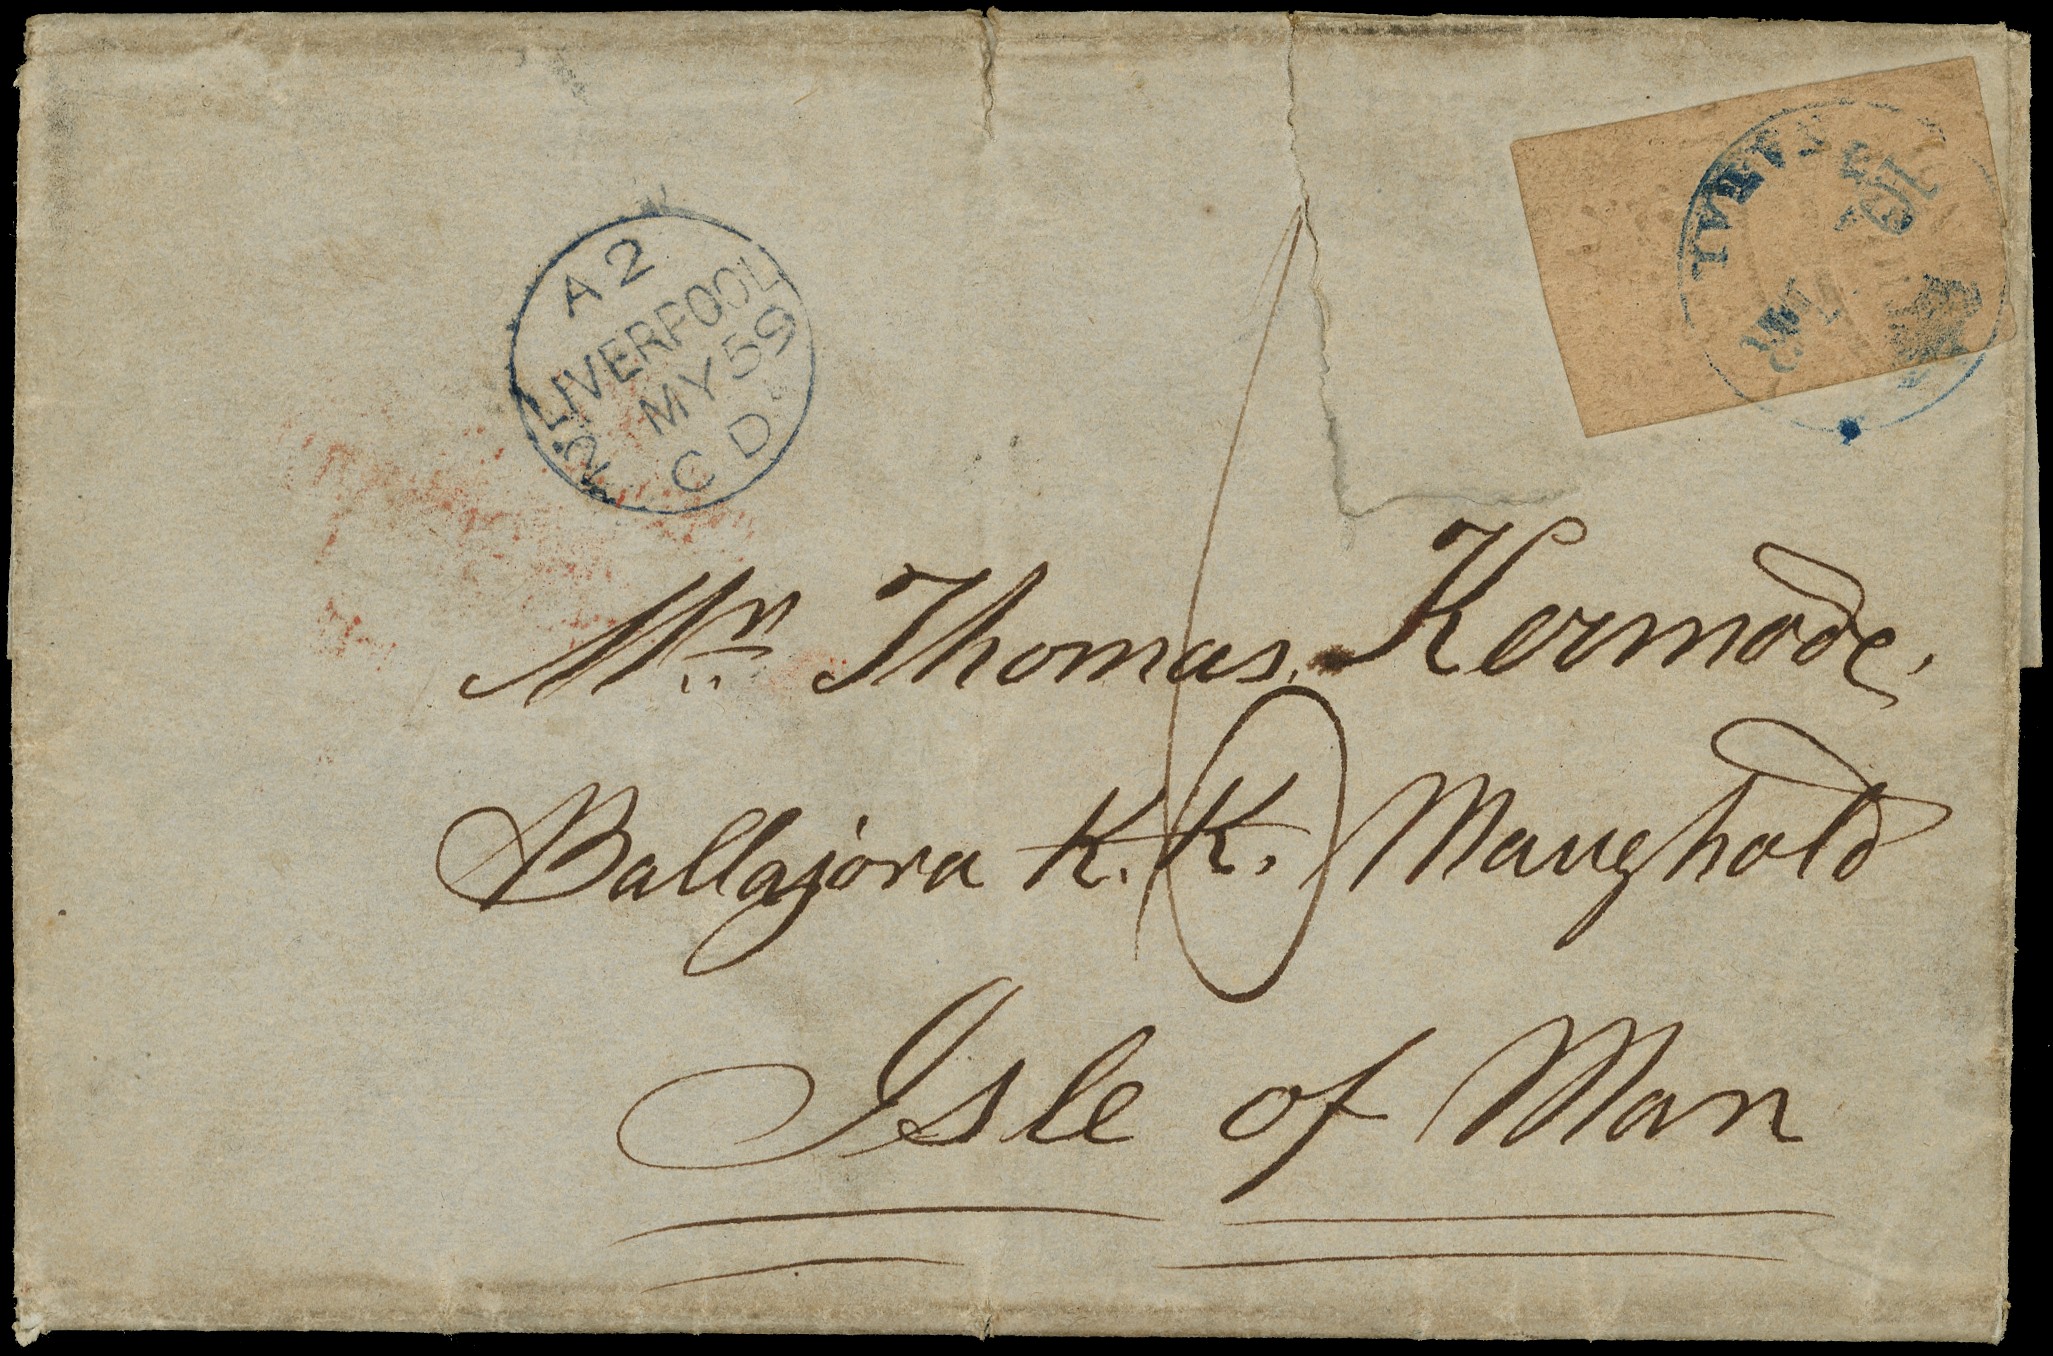 A 2
LIVERPOOL
2 MY 59
C D
Mr. Thomas Kermode,
Ballajora K. K. Maughold
Isle of Man
6